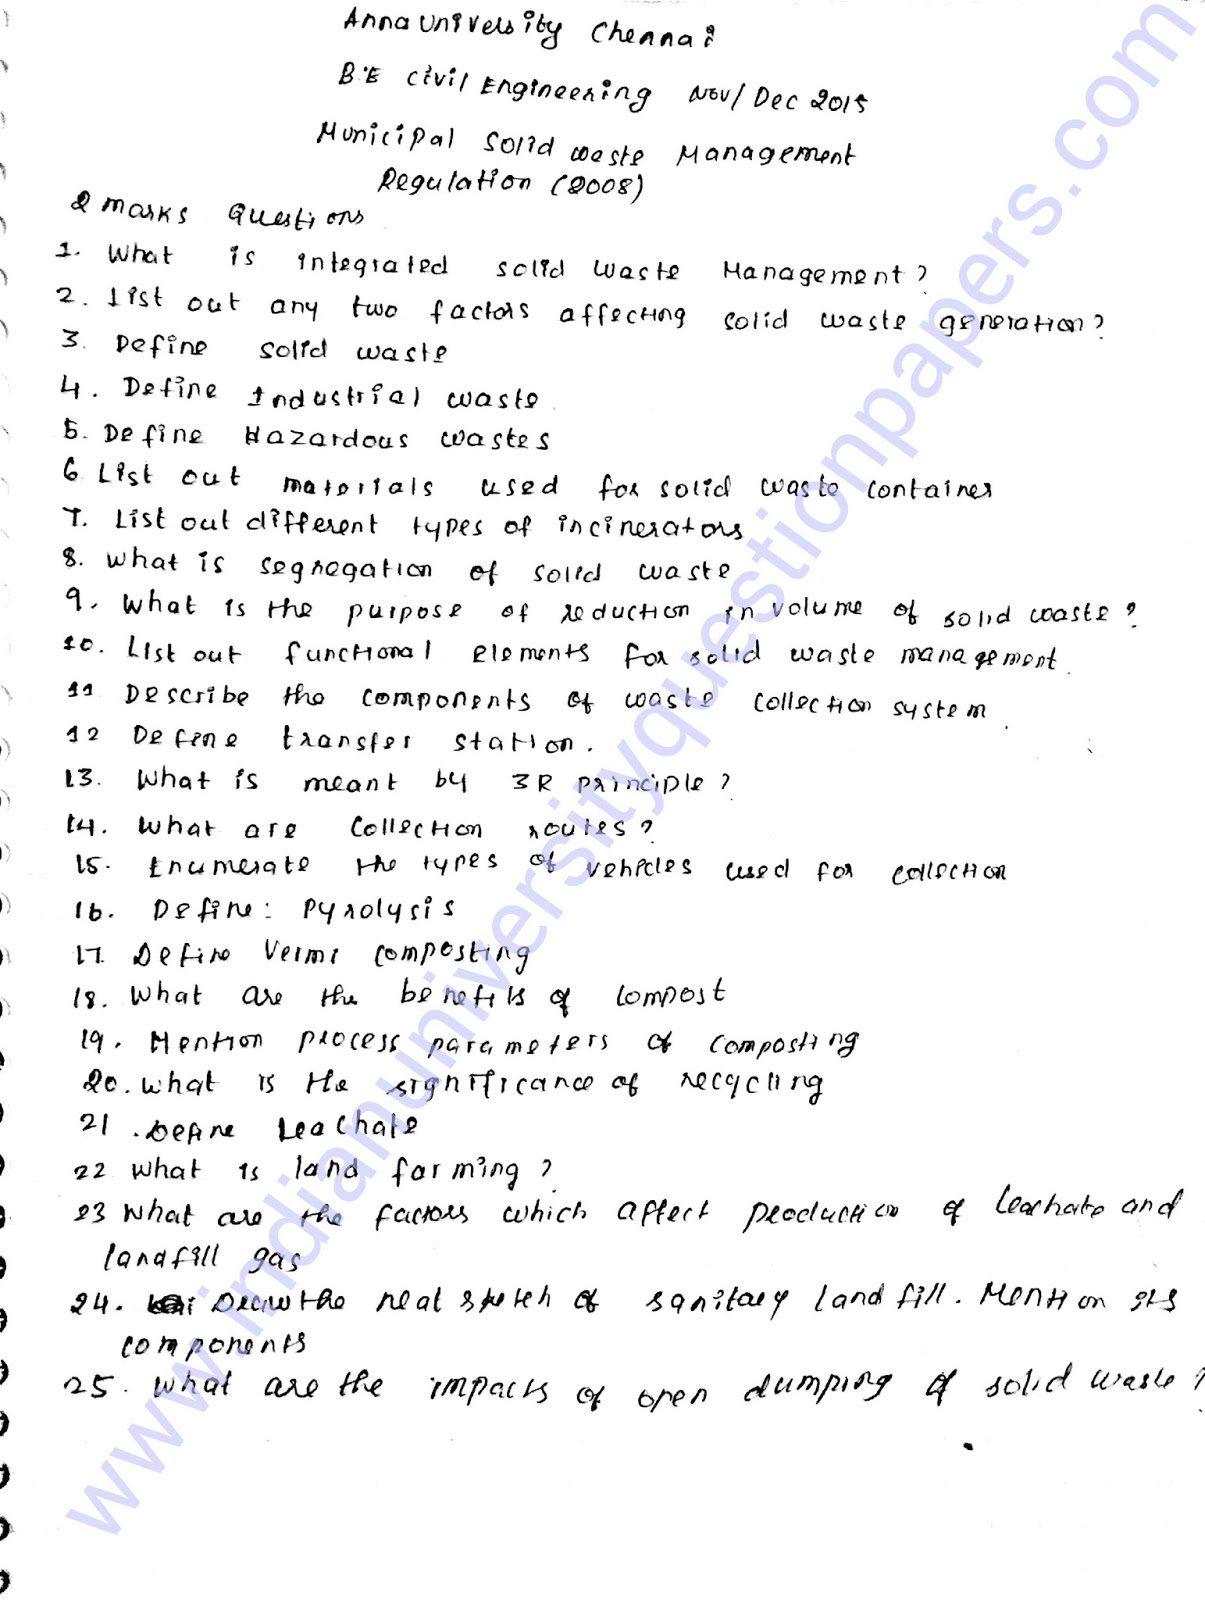 Anna University Chennai
B.E Civil Engineering Nov/Dec 2015
Municipal Solid waste Management
Regulation (2008)
2 marks Questions
1. What is integrated solid waste Management?
2. List out any two factors affecting solid waste generation?
3. Define solid waste
4. Define Industrial waste
5. Define Hazardous wastes
6 List out materials used for solid waste container
7. List out different types of incinerators
8. What is segregation of solid waste
9. What is the purpose of reduction in volume of solid waste?
10. List out functional elements for solid waste management.
11 Describe the components of waste collection system.
12 Define transfer station.
13. What is meant by 3R principle?
14. What are collection routes?
15. Enumerate the types of vehicles used for collection
16. Define: Pyrolysis
17. Define Vermi composting
18. What are the benefits of compost
19. Mention process parameters of composting
20. What is the significance of recycling
21. Define Leachate
22 What is land farming?
23 What are the factors which affect production of leachate and
landfill gas
24. Draw the neat sketch of sanitary land fill. Mention its
components
25. What are the impacts of open dumping of solid waste?
www.indianuniversityquestionpapers.com